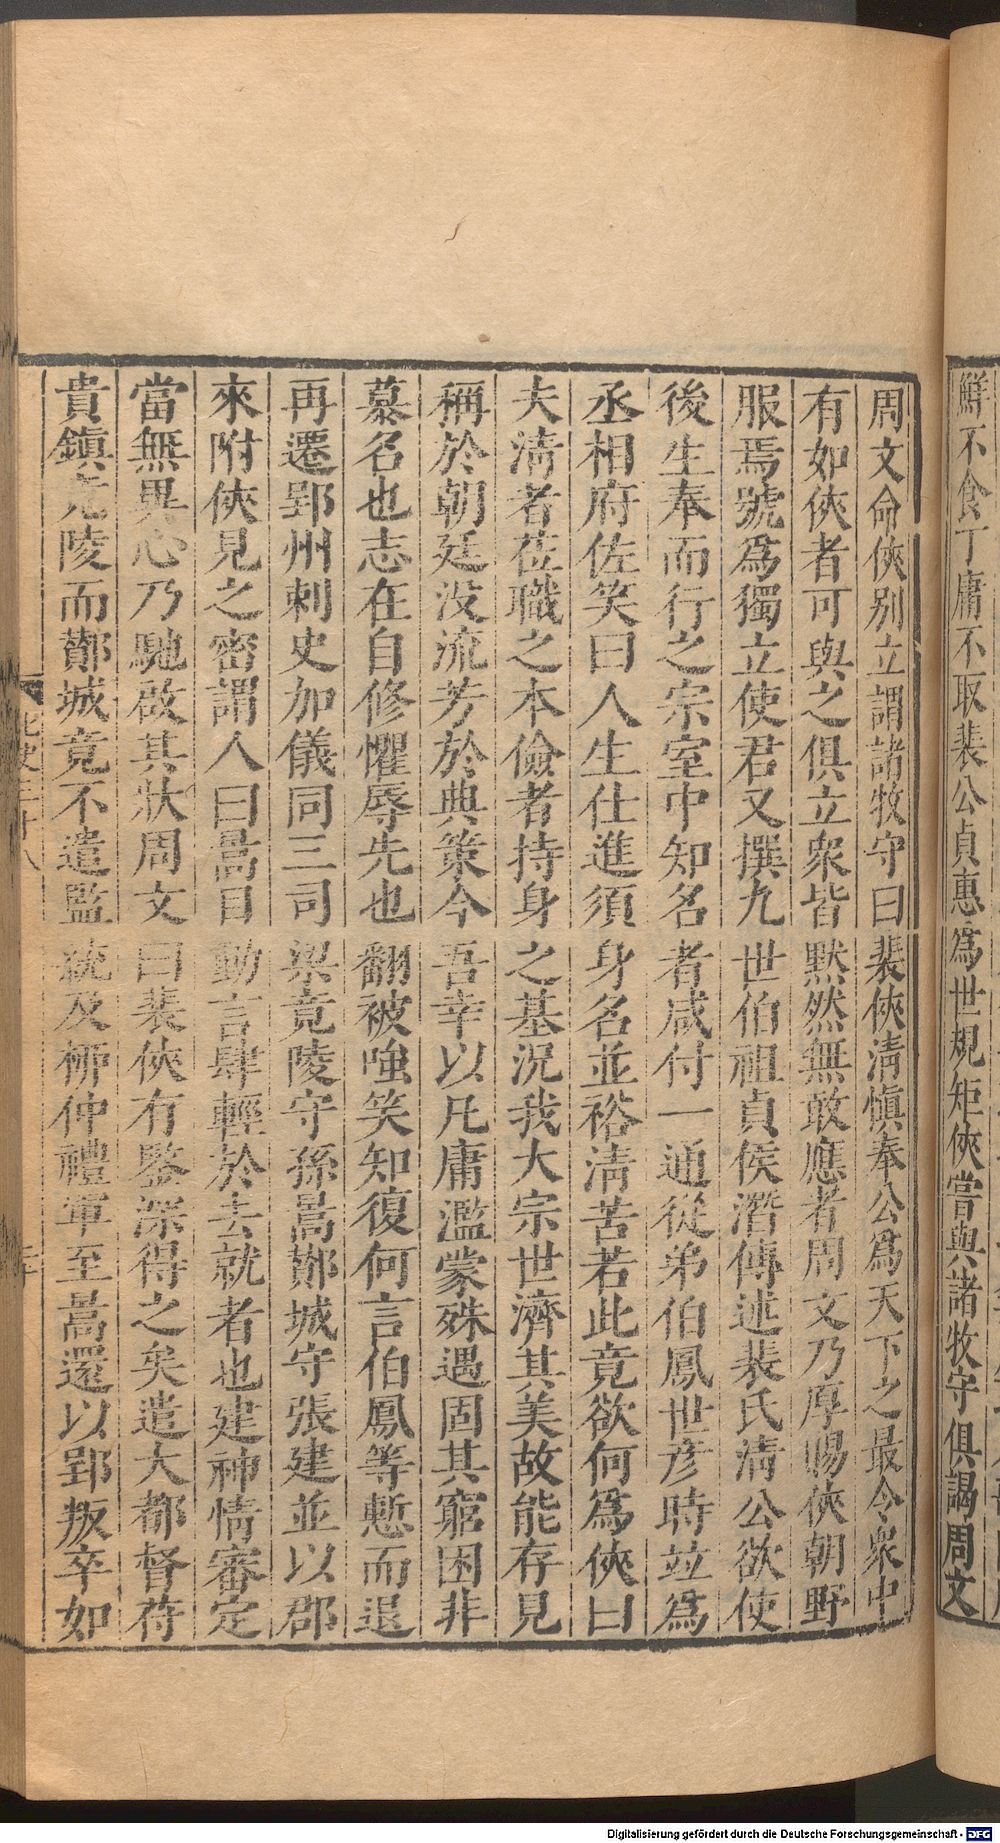 鮮不食丁庸不取裴公貞惠爲世規矩俠嘗與諸牧守俱謁周文
周文命俠别立謂諸牧守曰裴俠淸愼奉公爲天下之最今衆中
有如俠者可與之俱立衆皆默然無敢應者周文乃厚賜俠朝野
服焉號爲獨立使君又撰九世伯祖貞侯潛傳述裴氏淸公欲使
後生奉而行之宗室中知名者咸付一通從弟伯鳳世彥時竝爲
丞相府佐笑曰人生仕進須身名並裕淸苦若此竟欲何爲俠曰
夫淸者莅職之本儉者持身之基況我大宗世濟其美故能存見
稱於朝廷没流芳於典策今吾幸以凡庸濫蒙殊遇固其窮困非
慕名也志在自修懼辱先也翻被嗤笑知復何言伯鳳等慙而退
再遷郢州刺史加儀同三司梁竟陵守孫暠酇城守張建並以郡
來附俠見之密謂人曰暠目動言肆輕於去就者也建神情審定
當無異心乃馳啟其狀周文曰裴俠有鑒深得之矣遣大都督苻
貴鎭竟陵而酇城竟不遣監統及柳仲禮軍至暠還以郢叛卒如
北史三十八
Digitalisierung gefördert durch die Deutsche Forschungsgemeinschaft - DFG